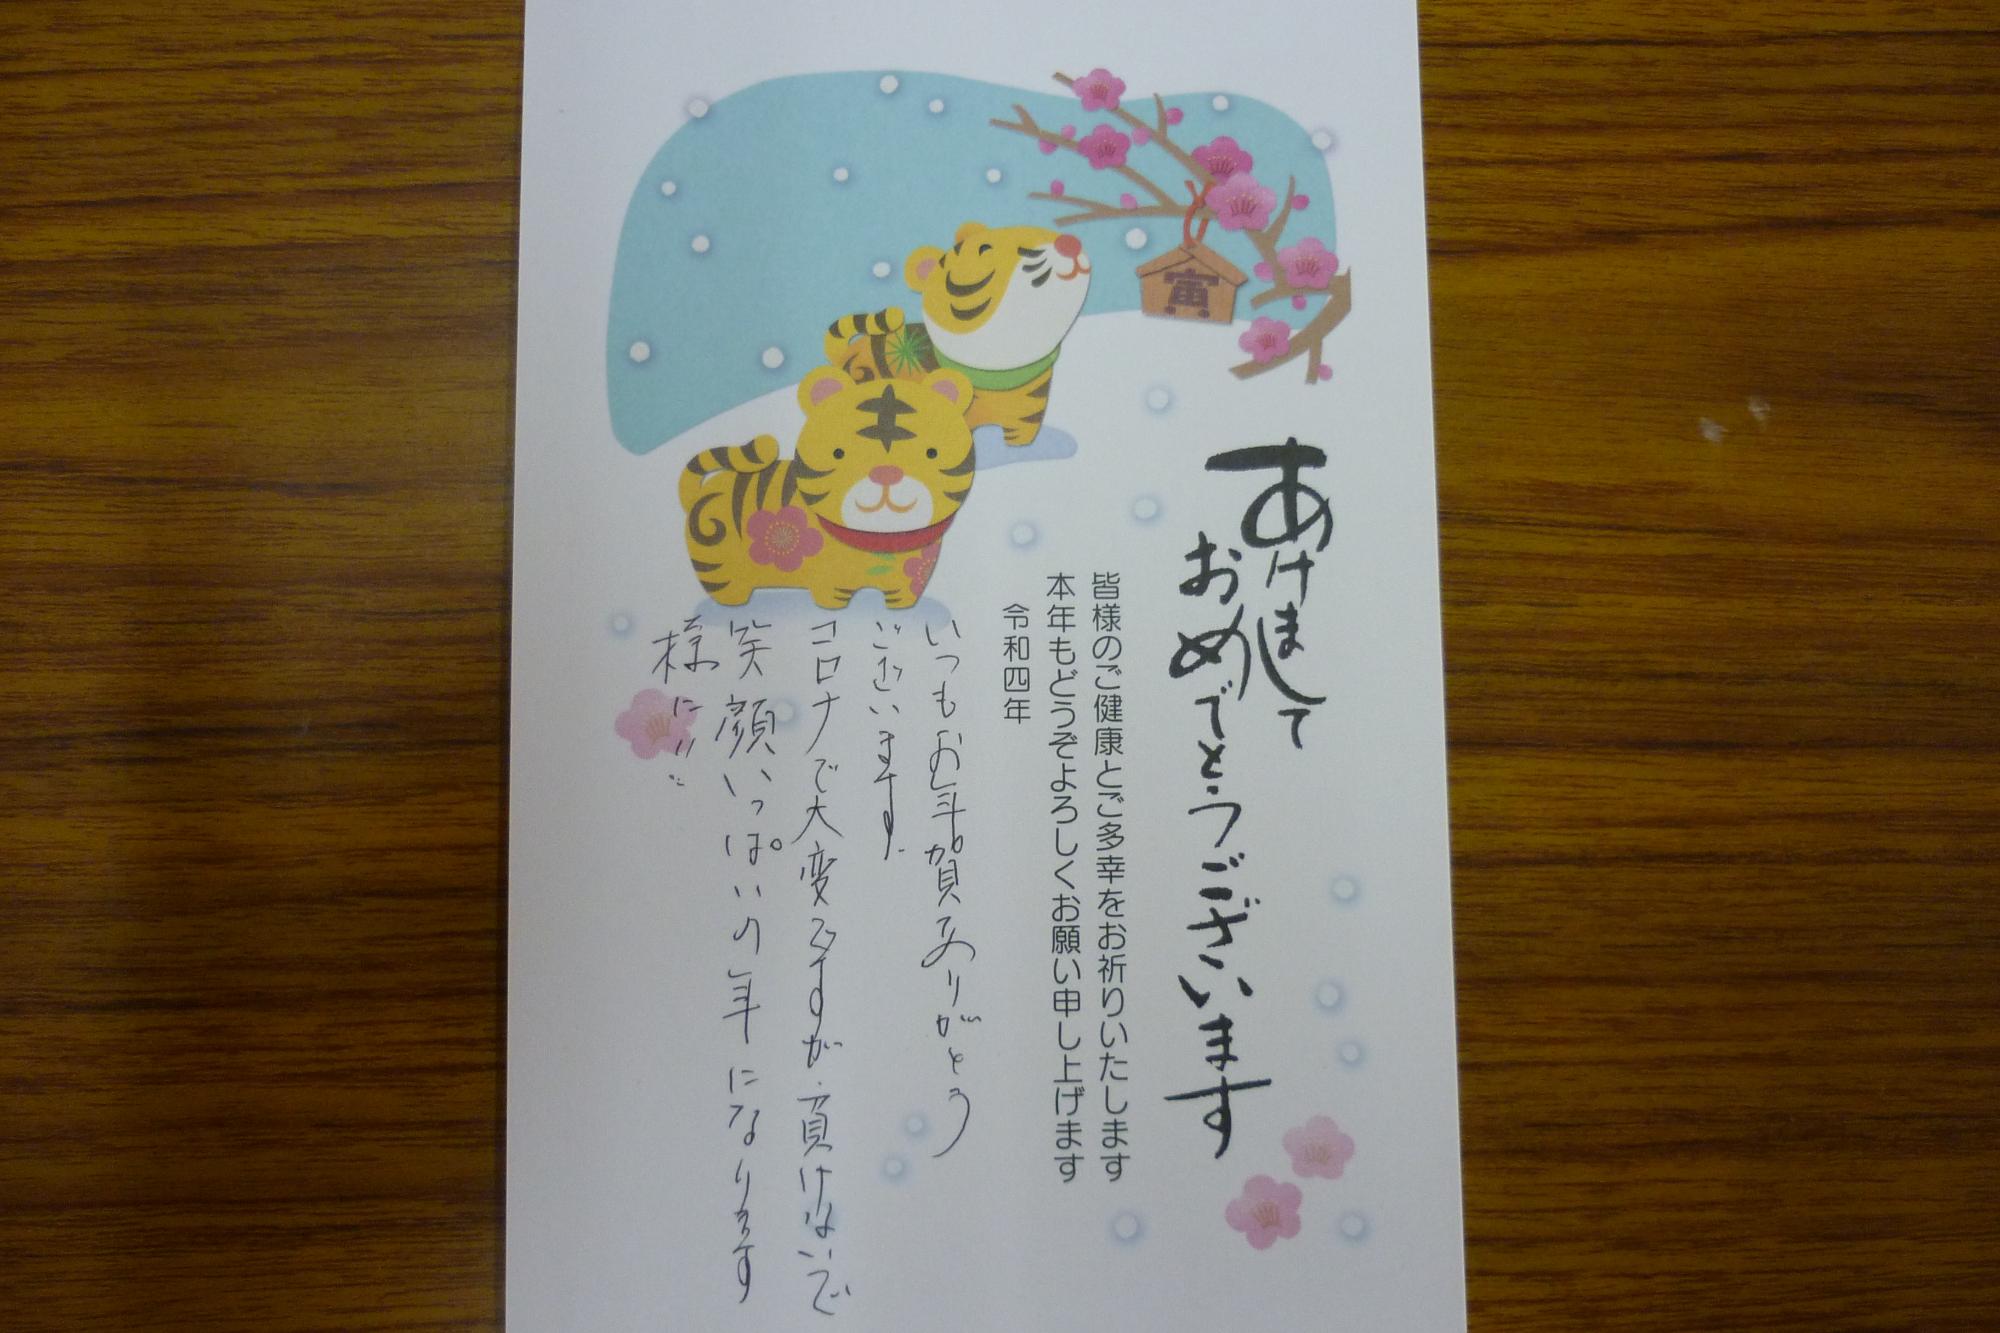 あけまして
おめでとうございます
皆様のご健康とご多幸をお祈りいたします
本年もどうぞよろしくお願い申し上げます
令和四年
寅
いつもお年賀ありがとう
ございます
コロナで大変ですが、負けないで
笑顔いっぱいの年になります
様に!!